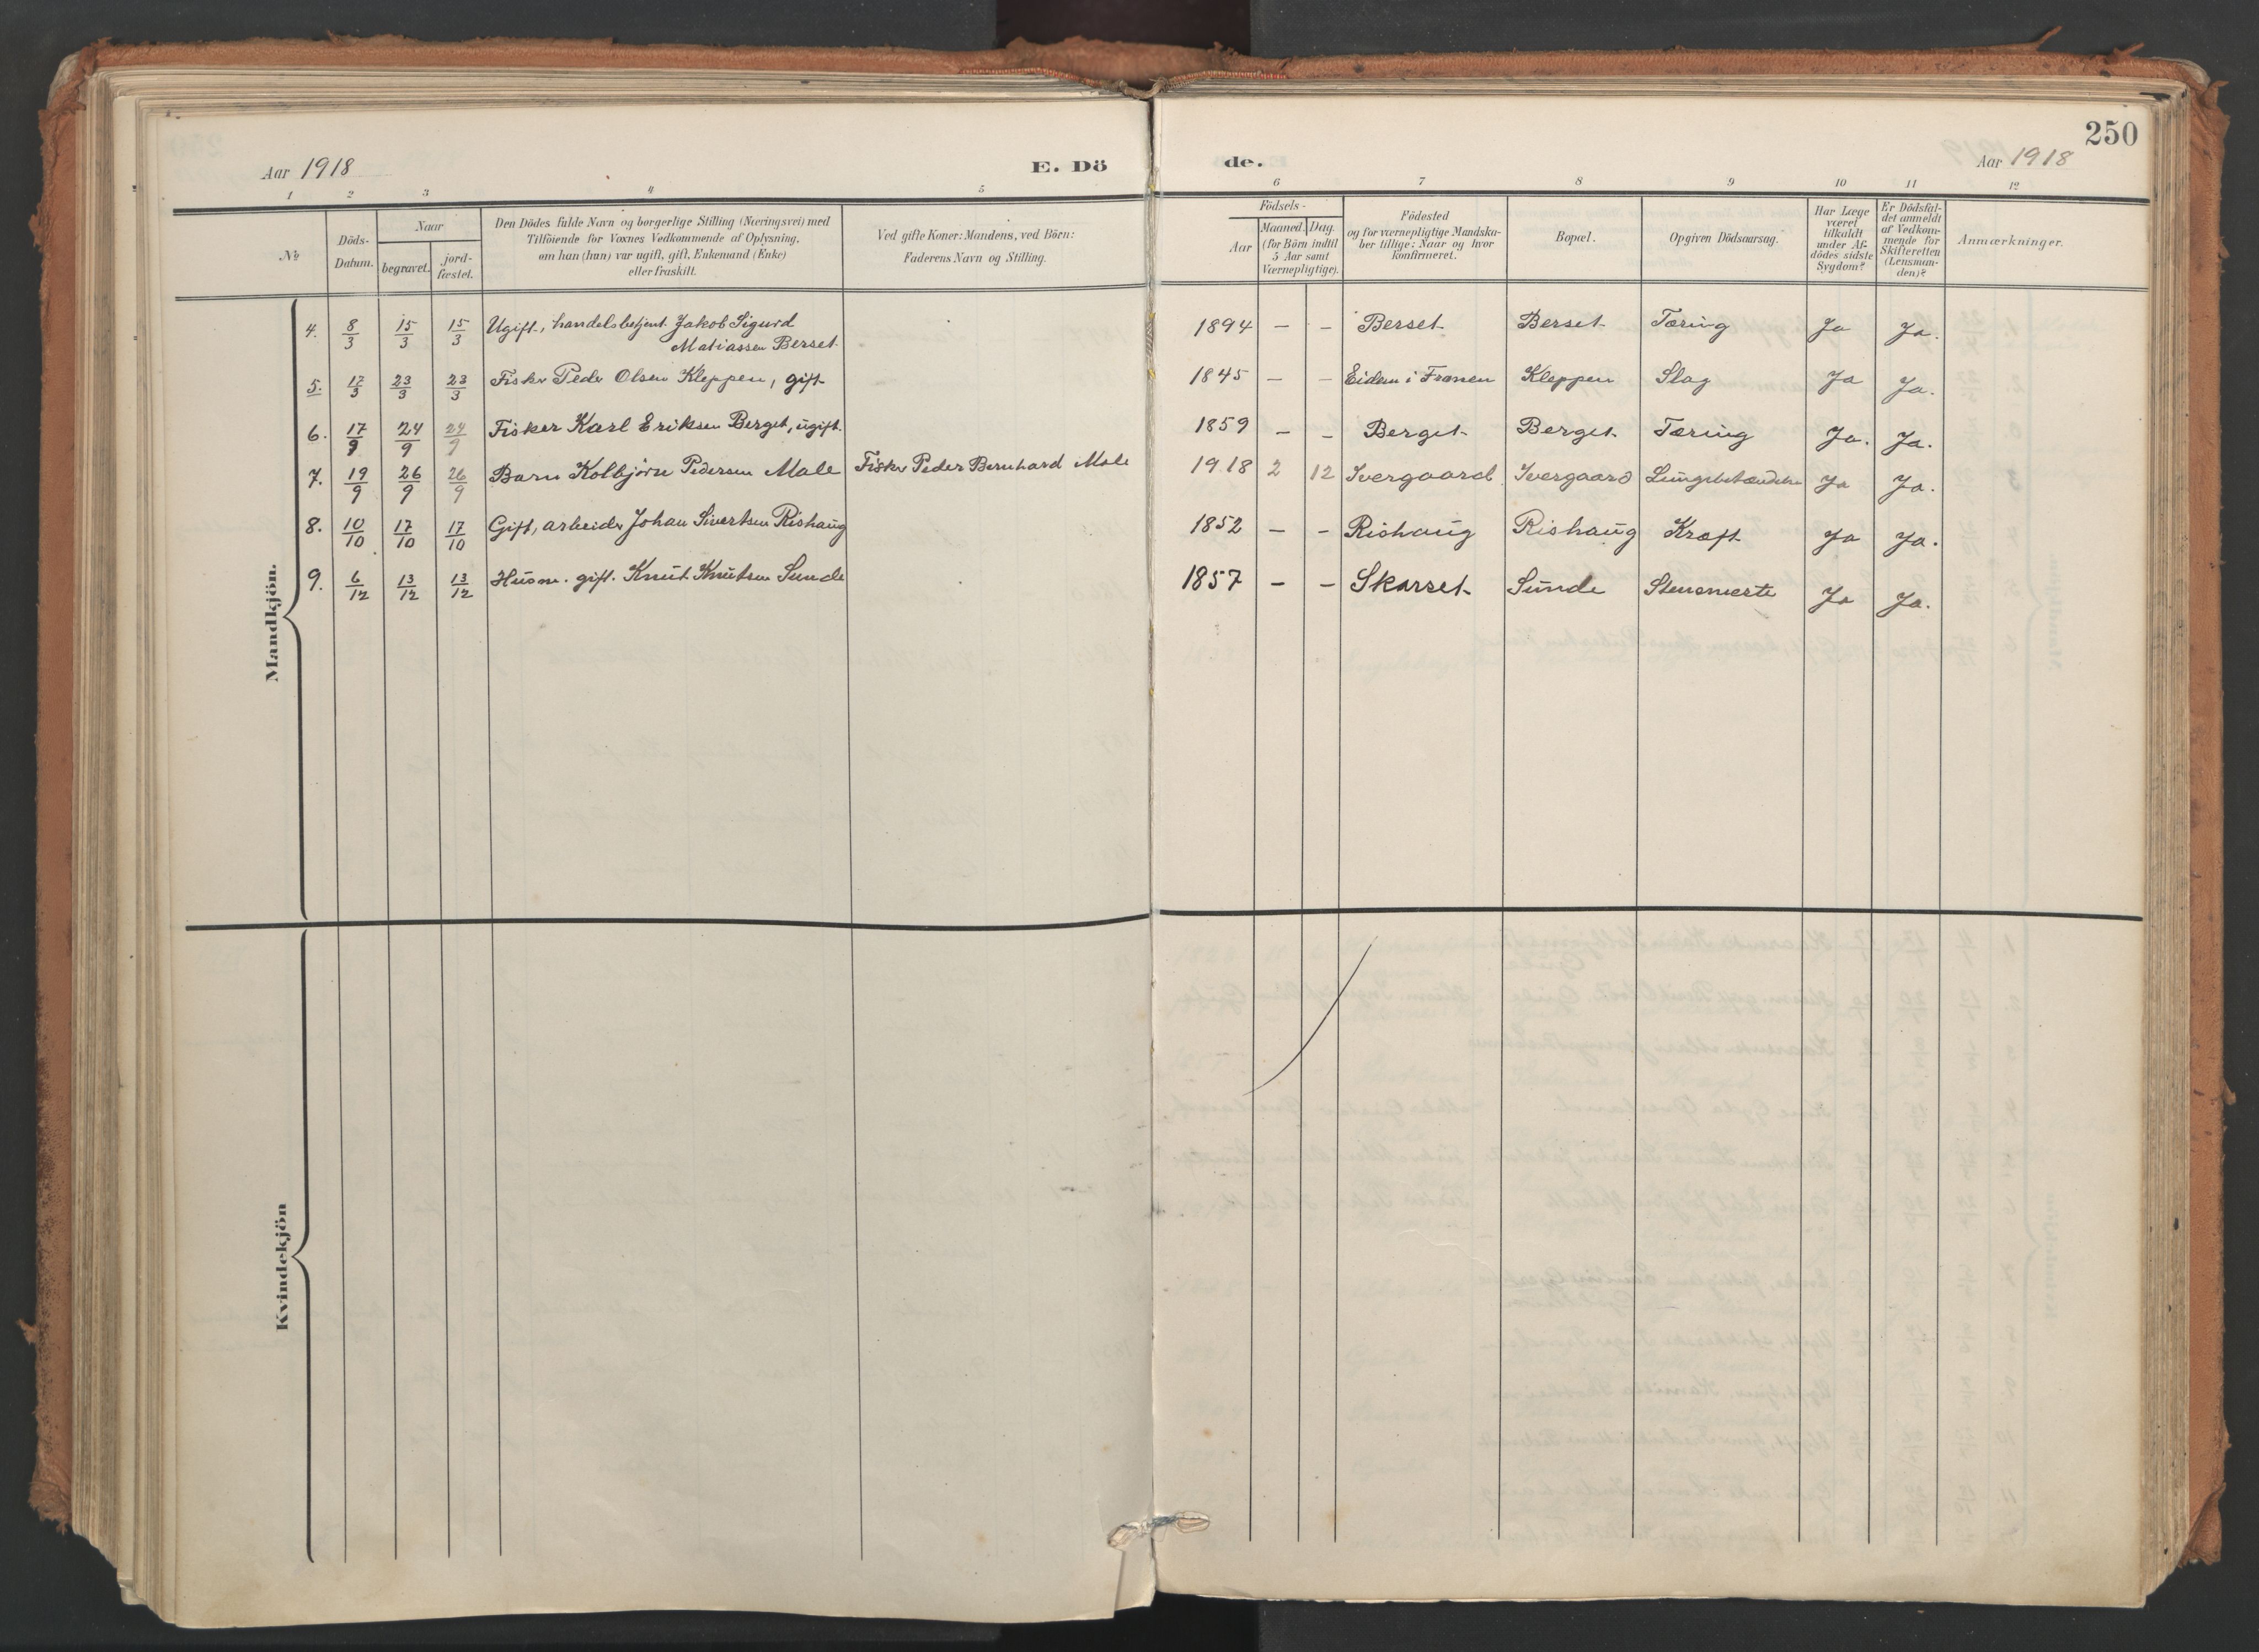 250
Aar 1918
E. Dö
de.
Aar 1918
1 2 3 4 5 6 7 8 9 10 11 12
No
Döds-
Datum.
Naar
begravet.
jord-
fæstet.
Den Dödes fulde Navn og borgerlige Stilling (Næringsvei) med
Tilföiende for Voxnes Vedkommende af Oplysning,
om han (hun) var ugift, gift, Enkemand (Enke)
eller fraskilt.
Ved gifte Koner: Mandens, ved Börn:
Faderens Navn og Stilling.
Födsels-
Aar
Maaned. Dag.
(for Börn indtil
5 Aar samt
Værnepligtige).
Födested
og for værnepligtige Mandska-
ber tillige: Naar og hvor
konfirmeret.
Bopæl.
Opgiven Dödsaarsag.
Har Læge
været
tilkaldt
under Af-
dödes sidste
Sygdom?
Er Dödsfal-
det anmeldt
af Vedkom-
mende for
Skifteretten
(Lensman-
den)?
Anmærkninger.
Mandkjön.
4. 8/3 15/3 15/3 Ugift, handelsbetjent Jakob Sigurd
Matiassen Berset 1894 – – Berset Berset Tæring Ja Ja.
5. 17/3 23/3 23/3 Fisker Peder Olsen Kleppen, gift 1845 – – Eidem i Frænen Kleppen Slag Ja Ja.
6. 17/9 24/9 24/9 Fisker Karl Eriksen Berget, ugift. 1859 – – Berget Berget Tæring Ja. Ja.
7. 19/9 26/9 26/9 Barn Kolbjørn Pedersen Male Fisker Peder Bernhard Male 1918 2 12 Ivergaard Ivergaard Lungebetændelse Ja Ja.
8. 10/10 17/10 17/10 Gift, arbeider Johan Sivertsen Rishaug 1852 – – Rishaug Rishaug Kræft Ja Ja.
9. 6/12 13/12 13/12 Husm. gift. Knut Knutsen Sunde 1857 – – Skarset Sunde Ja Ja.
Kvindekjön